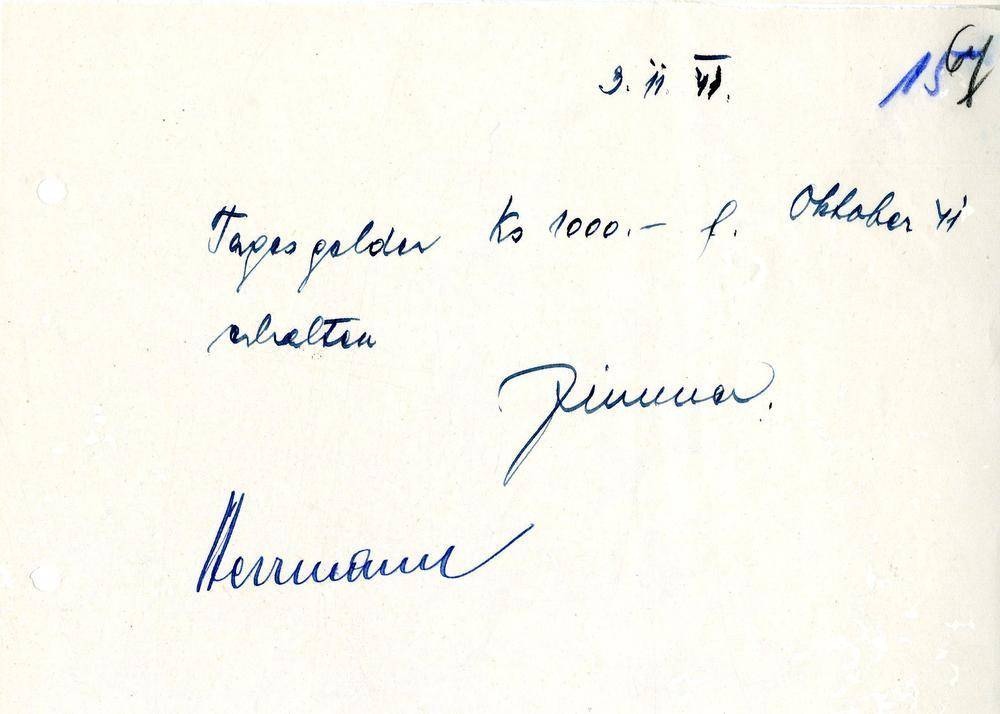 3. 11. 41.
Tagesgelder Ks 1000.- f. Oktober 41
erhalten
Herrmann